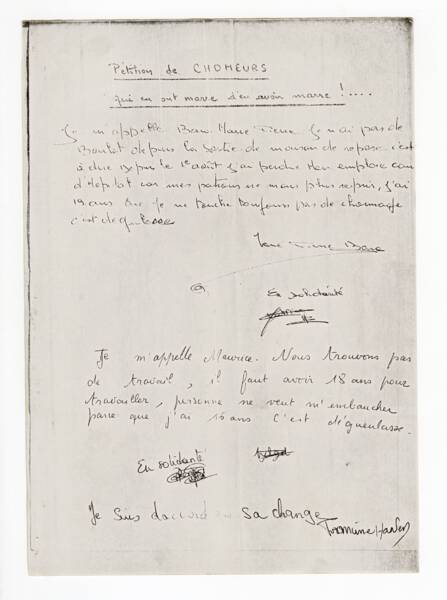 Pétition de CHOMEURS
qui en ont marre d'en avoir marre !....
Je m'appelle Marie je n'ai pas de
Boulot depuis la sortie de maison de repose c'est
à dire le 1er août j'ai perdu mon emploie
car mes patrons ne m'ont plus repris, j'ai
19 ans je ne touche toujours pas de chomage
c'est
En solidarité
Je m'appelle Maurice. Nous trouvons pas
de travail, il faut avoir 18 ans pour
travailler, personne ne veut m'embaucher
parce que j'ai 16 ans c'est dégueulasse.
En solidarité
Je suis d'accord sa change